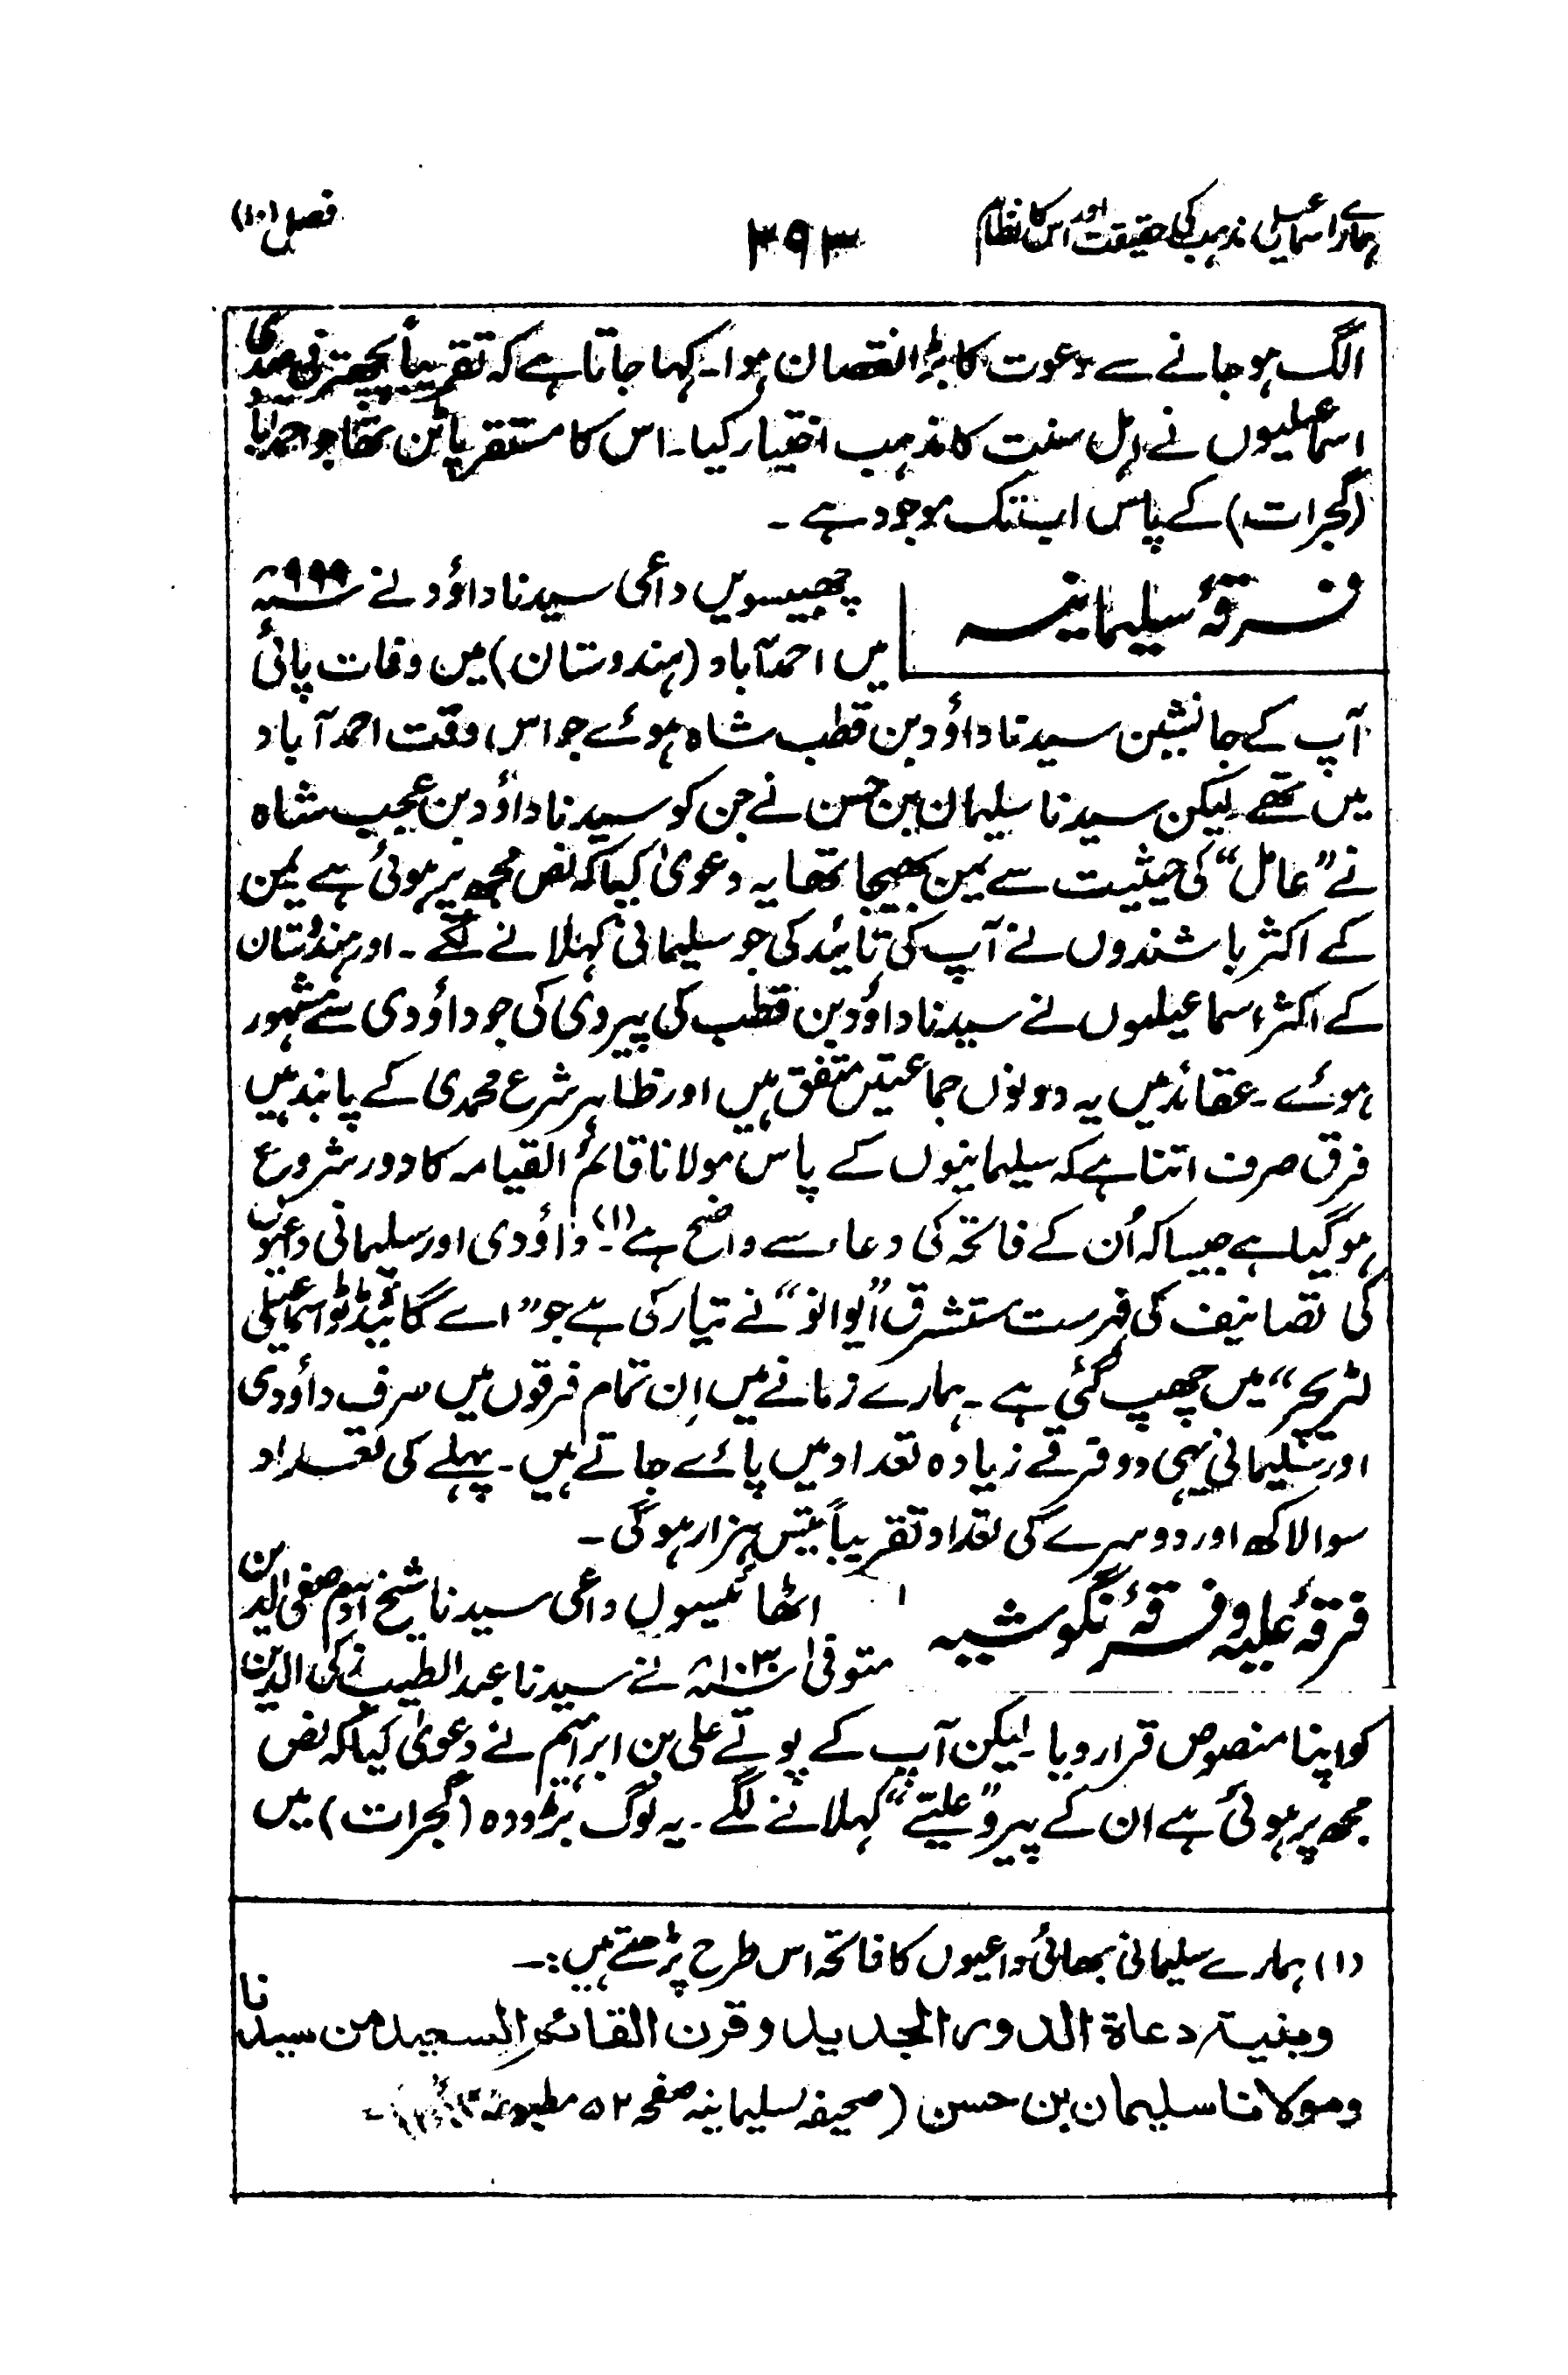 ہمارے اسماعیلی مذہب کی حقیقت اور اس کا نظام
۳۹۳
فصل (۱۰)
الگ ہو جانے سے دعوت کا بڑا نقصان ہوا۔ کہا جاتا ہے کہ تقریباً پچھتر فی صدی
اسماعیلیوں نے اہل سنت کا مذہب اختیار کیا۔ اس کا مستقر پاٹن تھا جو احمد آباد
(گجرات) کے پاس اب تک موجود ہے ۔
فرقۂ سلیمانیہ
چھبیسویں داعی سیدنا داؤد نے ۹۹۹ھ
میں احمد آباد (ہندوستان) میں وفات پائی
آپ کے جانشین سیدنا داؤد بن قطب شاہ ہوئے جو اس وقت احمد آباد
میں تھے لیکن سیدنا سلیمان بن حسن نے جن کو سیدنا داؤد بن عجب شاہ
نے ”عامل“ کی حیثیت سے یمن بھیجا تھا یہ دعویٰ کیا کہ نص مجھ پر ہوئی ہے یمن
کے اکثر باشندوں نے آپ کی تائید کی جو سلیمانی کہلانے لگے ۔ اور ہندستان
کے اکثر اسماعیلیوں نے سیدنا داؤد بن قطب کی پیروی کی جو داؤدی سے مشہور
ہوئے ۔ عقائد میں یہ دونوں جماعتیں متفق ہیں اور ظاہر شرع محمدی کے پابند ہیں
فرق صرف اتنا ہے کہ سلیمانیوں کے پاس مولانا قائم القیامہ کا دور شروع
ہو گیا ہے جیسا کہ اُن کے فاتحہ کی دعاء سے واضح ہے (۱)۔ داؤدی اور سلیمانی داعیوں
کی تصانیف کی فہرست مستشرق ”ایوانو“ نے تیار کی ہے جو ”اے گائیڈ ٹو اسماعیلی
لٹریچر“ میں چھپ گئی ہے ۔ ہمارے زمانے میں اِن تمام فرقوں میں صرف داؤدی
اور سلیمانی یہی دو فرقے زیادہ تعداد میں پائے جاتے ہیں ۔ پہلے کی تعداد
سوا لاکھ اور دوسرے کی تعداد تقریباً تیس ہزار ہو گی ۔
فرقۂ علیہ و فرقۂ نگوشیہ
اٹھائیسویں داعی سیدنا شیخ آدم صفی الدین
متوفیٰ ۱۰۳۰ھ نے سیدنا عبد الطیب زکی الدین
کو اپنا منصوص قرار دیا ۔ لیکن آپ کے پوتے علی بن ابراہیم نے دعویٰ کیا کہ نص
مجھ پر ہوئی ہے ان کے پیرو ”علیّے“ کہلانے لگے ۔ یہ لوگ بڑودہ (گجرات) میں
(۱) ہمارے سلیمانی بھائی داعیوں کا فاتحہ اس طرح پڑھتے ہیں :۔
وبنیۃ دعاۃ الدور الجدید وقرن القائم السعید من سیدنا
ومولانا سلیمان بن حسن (صحیفہ سلیمانیہ صفحہ ۵۲ مطبوعہ